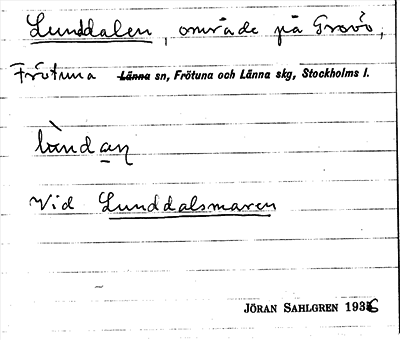 Lunddalen, område på Gräsö,
Frötuna Länna sn, Frötuna och Länna skg, Stockholms l.
lùndan
Vid Lunddalsmaren
JÖRAN SAHLGREN 1936